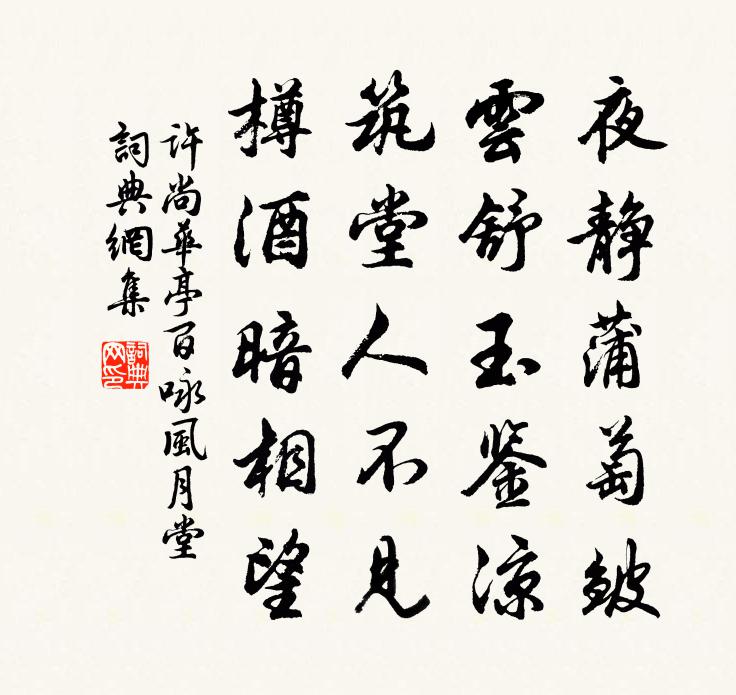 夜靜蒲萄皺
雲舒玉鉴涼
筑堂人不見
樽酒暗相望
許尚華亭百咏風月堂
詞典網集
詞典
网印